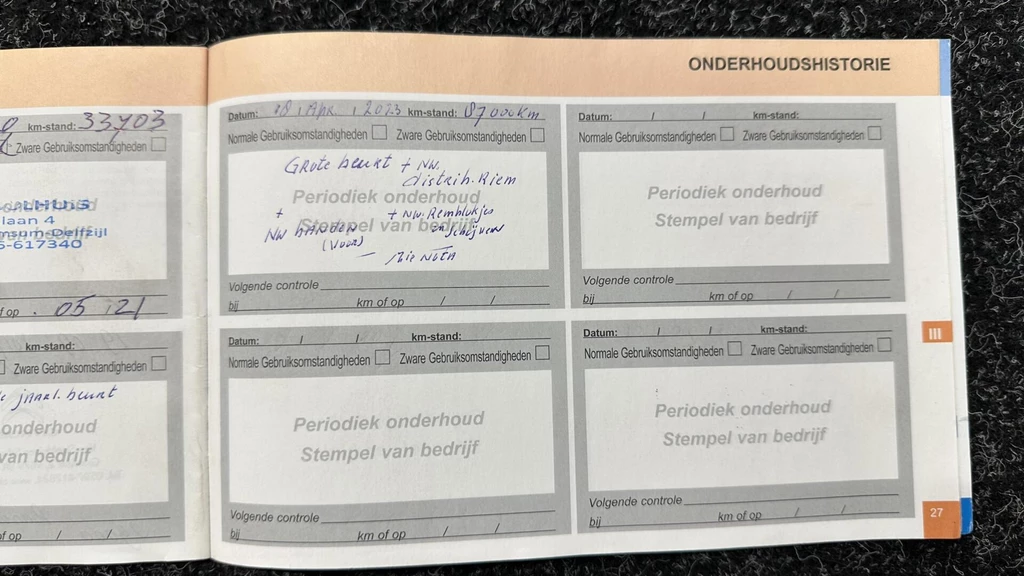 ONDERHOUDSHISTORIE
km-stand: 33703
Zware Gebruiksomstandigheden
onderhoud
laan 4
nsum-Delfzijl
6-617340
of op . 05 21
km-stand:
Zware Gebruiksomstandigheden
jaarl. beurt
onderhoud
van bedrijf
of op / /
Datum: 18 / Apr. / 2023 km-stand: 87000km
Normale Gebruiksomstandigheden Zware Gebruiksomstandigheden
Grote beurt + NW.
distrib. Riem
Periodiek onderhoud
+ + NW. Remblokjes
Stempel van bedrijf
NW BANDEN en schijven
(VOOR)
— Zie NOTA
Volgende controle
bij km of op / /
Datum: / / km-stand:
Normale Gebruiksomstandigheden Zware Gebruiksomstandigheden
Periodiek onderhoud
Stempel van bedrijf
Volgende controle
bij km of op / /
Datum: / / km-stand:
Normale Gebruiksomstandigheden Zware Gebruiksomstandigheden
Periodiek onderhoud
Stempel van bedrijf
Volgende controle
bij km of op / /
Datum: / / km-stand:
Normale Gebruiksomstandigheden Zware Gebruiksomstandigheden
Periodiek onderhoud
Stempel van bedrijf
Volgende controle
bij km of op / /
III
27